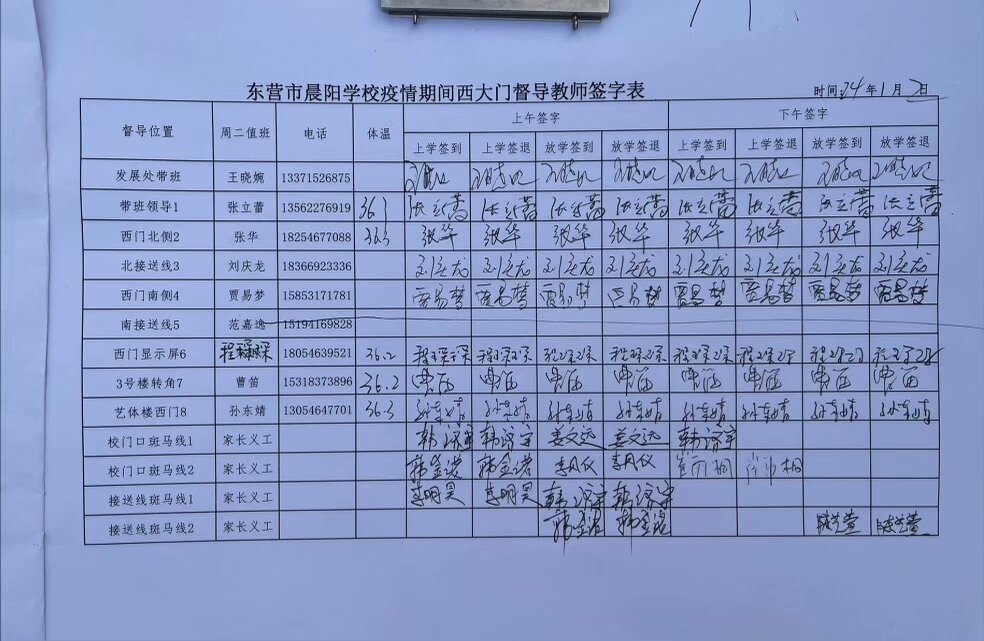 东营市晨阳学校疫情期间西大门督导教师签字表
时间:24年1月2日
督导位置 周二值班 电话 体温 上午签字 下午签字
上学签到 上学签退 放学签到 放学签退 上学签到 上学签退 放学签到 放学签退
发展处带班 王晓婉 13371526875 王晓婉 王晓婉 王晓婉 王晓婉 王晓婉 王晓婉 王晓婉 王晓婉
带班领导1 张立蕾 13562276919 36.3 张立蕾 张立蕾 张立蕾 张立蕾 张立蕾 张立蕾 张立蕾 张立蕾
西门北侧2 张华 18254677088 36.3 张华 张华 张华 张华 张华 张华 张华 张华
北接送线3 刘庆龙 18366923336 刘庆龙 刘庆龙 刘庆龙 刘庆龙 刘庆龙 刘庆龙 刘庆龙 刘庆龙
西门南侧4 贾易梦 15853171781 贾易梦 贾易梦 贾易梦 贾易梦 贾易梦 贾易梦 贾易梦 贾易梦
南接送线5 范嘉逸 15194169828
西门显示屏6 程琛琛 18054639521 36.2 程琛琛 程琛琛 程琛琛 程琛琛 程琛琛 程琛琛 程琛琛 程琛琛
3号楼转角7 曹笛 15318373896 36.2 曹笛 曹笛 曹笛 曹笛 曹笛 曹笛 曹笛 曹笛
艺体楼西门8 孙东婧 13054647701 36.3 孙东婧 孙东婧 孙东婧 孙东婧 孙东婧 孙东婧 孙东婧 孙东婧
校门口斑马线1 家长义工 韩济宇 韩济宇 姜文远 姜文远 韩济宇
校门口斑马线2 家长义工 韩金诺 韩金诺 李月仪 李月仪
接送线斑马线1 家长义工 李明昊 李明昊 韩济宇 韩济宇
接送线斑马线2 家长义工 韩金诺 韩金诺